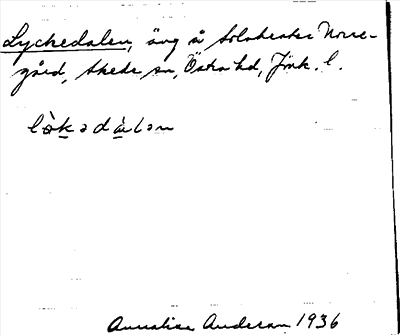 Lyckedalen, äng å Solaberker Norre-
gård, Skede sn, Östra hd, Jönk. l.
lòkadàlən
Annalisa Anderson 1936